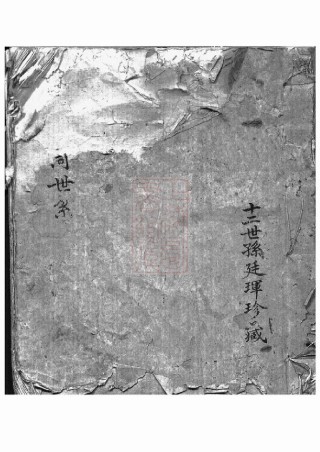 十二世孫廷琿珍藏
世系